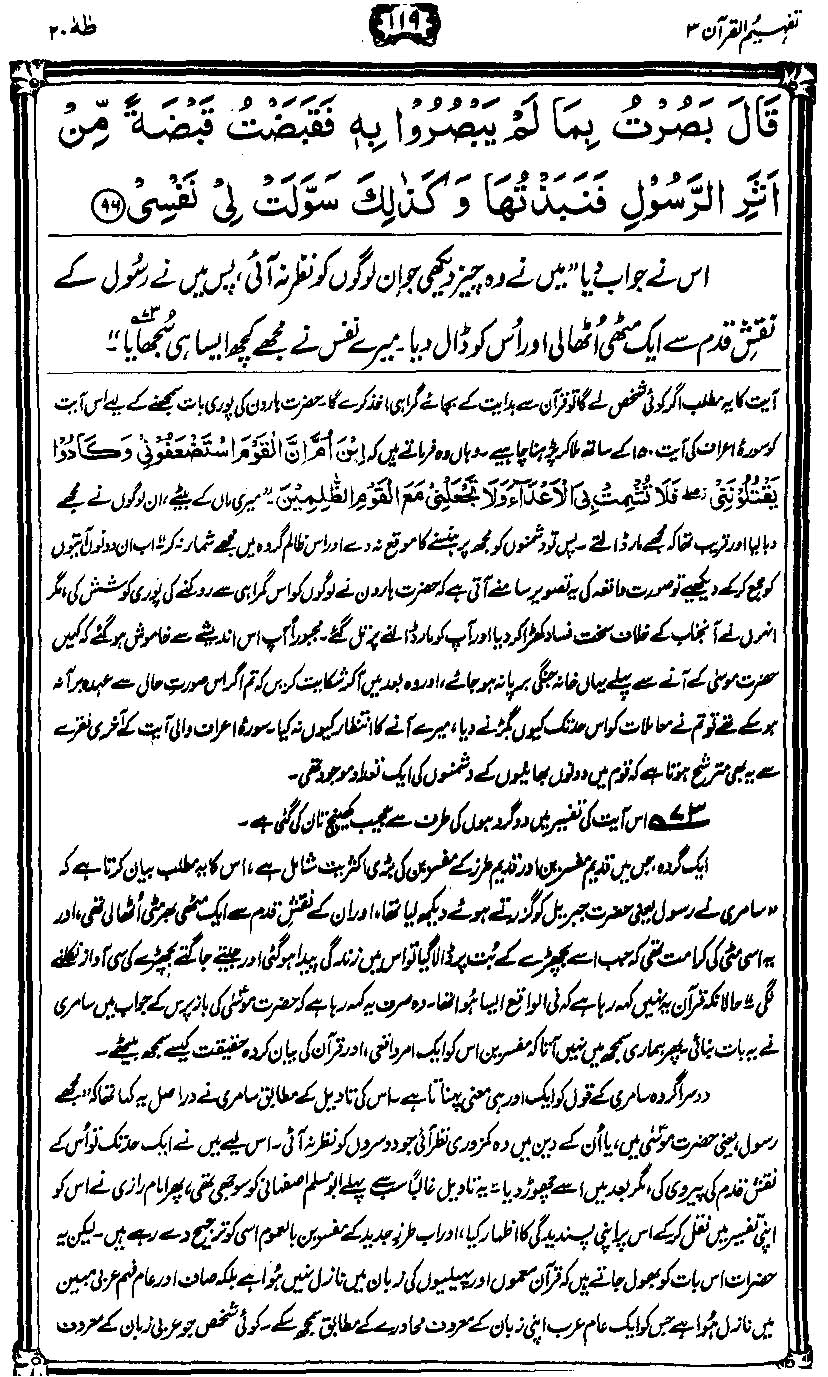 تفہیم القرآن ۳
۱۱۹
طٰہٰ ۲۰
قَالَ بَصُرْتُ بِمَا لَمْ يَبْصُرُوْا بِهٖ فَقَبَضْتُ قَبْضَةً مِّنْ
اَثَرِ الرَّسُوْلِ فَنَبَذْتُهَا وَكَذٰلِكَ سَوَّلَتْ لِيْ نَفْسِيْ ﴿۹۶﴾
اس نے جواب دیا ”میں نے وہ چیز دیکھی جو اِن لوگوں کو نظر نہ آئی، پس میں نے رسُول کے
نقشِ قدم سے ایک مٹھی اُٹھالی اور اُس کو ڈال دیا۔ میرے نفس نے مجھے کچھ ایسا ہی سُجھایا۷۳“۔
آیت کا یہ مطلب اگر کوئی شخص لے گا تو قرآن سے ہدایت کے بجائے گمراہی اخذ کرے گا۔ حضرت ہارون کی پوری بات سمجھنے کے لیے اس آیت
کو سورۂ اعراف کی آیت ۱۵۰ کے ساتھ ملا کر پڑھنا چاہیے۔ وہاں وہ فرماتے ہیں کہ اِبْنَ اُمَّ اِنَّ الْقَوْمَ اسْتَضْعَفُوْنِيْ وَكَادُوْا
يَقْتُلُوْنَنِيْ ۖ فَلَا تُشْمِتْ بِيَ الْاَعْدَآءَ وَلَا تَجْعَلْنِيْ مَعَ الْقَوْمِ الظّٰلِمِيْنَ۔ ”میری ماں کے بیٹے، ان لوگوں نے مجھے
دبا لیا اور قریب تھا کہ مجھے مار ڈالتے۔ پس تو دشمنوں کو مجھ پر ہنسنے کا موقع نہ دے اور اس ظالم گروہ میں مجھے شمار نہ کر“ اب ان دونوں آیتوں
کو جمع کر کے دیکھیے تو صورت واقعہ کی یہ تصویر سامنے آتی ہے کہ حضرت ہارون نے لوگوں کو اس گمراہی سے روکنے کی پوری کوشش کی، مگر
انہوں نے آنجناب کے خلاف سخت فساد کھڑا کر دیا اور آپ کو مار ڈالنے پر تل گئے۔ مجبوراً آپ اس اندیشے سے خاموش ہو گئے کہ کہیں
حضرت موسٰی کے آنے سے پہلے یہاں خانہ جنگی برپا نہ ہو جائے، اور وہ بعد میں آکر شکایت کریں کہ تم اگر اس صورتِ حال سے عہدہ برآ نہ
ہو سکے تھے تو تم نے معاملات کو اس حد تک کیوں بگڑنے دیا، میرے آنے کا انتظار کیوں نہ کیا۔ سورۂ اعراف والی آیت کے آخری فقرے
سے یہ بھی مترشح ہوتا ہے کہ قوم میں دونوں بھائیوں کے دشمنوں کی ایک تعداد موجود تھی۔
۷۳ اس آیت کی تفسیر میں دو گروہوں کی طرف سے عجیب کھینچ تان کی گئی ہے۔
ایک گروہ، جس میں قدیم مفسرین اور قدیم طرز کے مفسرین کی بڑی اکثریت شامل ہے، اس کا یہ مطلب بیان کرتا ہے کہ
”سامری نے رسول یعنی حضرت جبریل کو گزرتے ہوئے دیکھ لیا تھا، اور ان کے نقشِ قدم سے ایک مٹھی بھر مٹی اُٹھا لی تھی، اور
یہ اسی مٹی کی کرامت تھی کہ جب اسے بچھڑے کے بُت پر ڈالا گیا تو اس میں زندگی پیدا ہو گئی اور جیتے جاگتے بچھڑے کی سی آواز نکلنے
لگی“ حالانکہ قرآن یہ نہیں کہہ رہا ہے کہ فی الواقع ایسا ہُوا تھا۔ وہ صرف یہ کہہ رہا ہے کہ حضرت موسٰی کی باز پرس کے جواب میں سامری
نے یہ بات بنائی۔ پھر ہماری سمجھ میں نہیں آتا کہ مفسرین اس کو ایک امر واقعی، اور قرآن کی بیان کردہ حقیقت کیسے سمجھ بیٹھے۔
دوسرا گروہ سامری کے قول کو ایک اور ہی معنی پہناتا ہے۔ اس کی تاویل کے مطابق سامری نے دراصل یہ کہا تھا کہ ”مجھے
رسول، یعنی حضرت موسٰی میں، یا اُن کے دین میں وہ کمزوری نظر آئی جو دوسروں کو نظر نہ آئی۔ اس لیے میں نے ایک حد تک تو اُس کے
نقشِ قدم کی پیروی کی، مگر بعد میں اسے چھوڑ دیا“۔ یہ تاویل غالباً سب سے پہلے ابو مسلم اصفہانی کو سوجھی تھی، پھر امام رازی نے اس کو
اپنی تفسیر میں نقل کر کے اس پر اپنی پسندیدگی کا اظہار کیا، اور اب طرزِ جدید کے مفسرین بالعموم اسی کو ترجیح دے رہے ہیں۔ لیکن یہ
حضرات اس بات کو بھول جاتے ہیں کہ قرآن معموں اور پہیلیوں کی زبان میں نازل نہیں ہُوا ہے بلکہ صاف اور عام فہم عربی مبین
میں نازل ہُوا ہے جس کو ایک عام عرب اپنی زبان کے معروف محاورے کے مطابق سمجھ سکے۔ کوئی شخص جو عربی زبان کے معروف